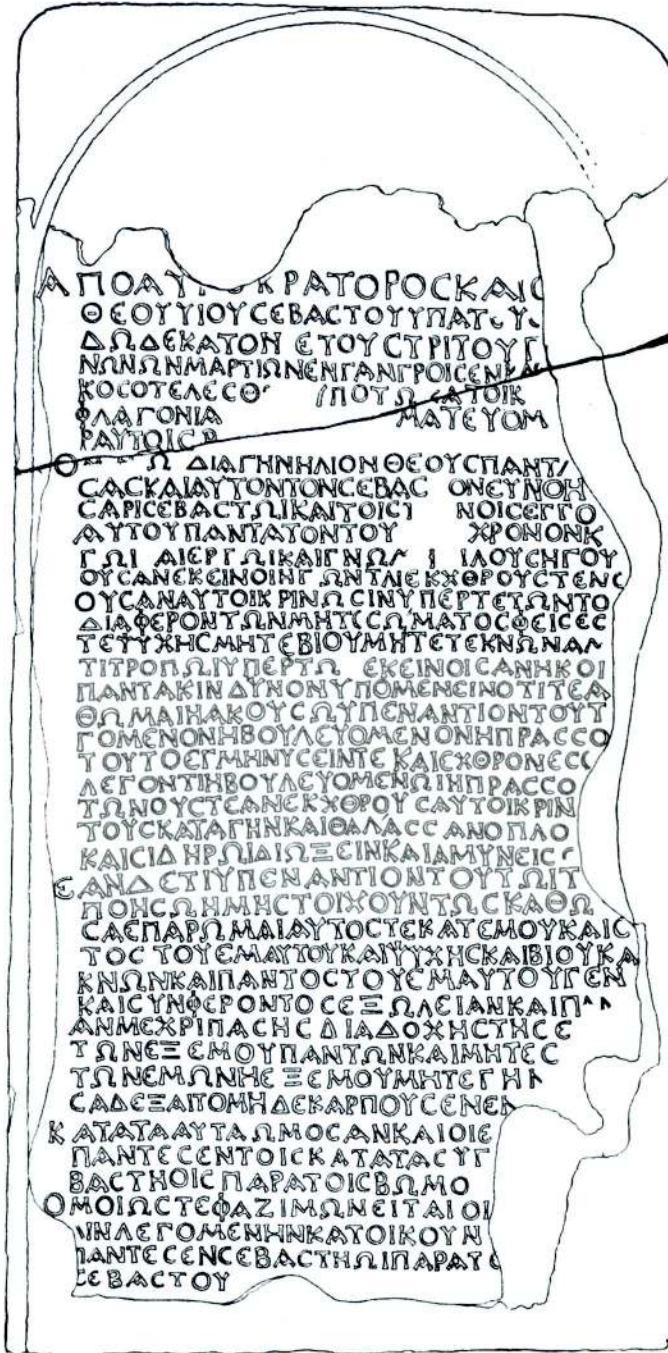 ΑΠΟΑΥΤΟΚΡΑΤΟΡΟϹΚΑΙϹ
ΘΕΟΥΥΙΟΥϹΕΒΑϹΤΟΥΥΠΑΤ
ΔΩΔΕΚΑΤΟΝ ΕΤΟΥϹΤΡΙΤΟΥΓ
ΝΩΝΩΝΜΑΡΤΙΩΝΕΝΓΑΝΓΡΟΙϹΕΝ
ΚΟϹΟΤΕΛΕϹΘ ΠΟΤΩ ΕΑΤΟΙΚ
ΦΛΑΓΟΝΙΑ ΜΑΤΕΥΟΜ
ΡΑΥΤΟΙϹ
Ο Ω ΔΙΑΓΗΝΗΛΙΟΝΘΕΟΥϹΠΑΝΤ
ϹΑϹΚΑΙΑΥΤΟΝΤΟΝϹΕΒΑϹ ΟΝΕΥΝΟΗ
ϹΑΡΙϹΕΒΑϹΤΩΙΚΑΙΤΟΙϹΤ ΝΟΙϹΕΓΓΟ
ΑΥΤΟΥΠΑΝΤΑΤΟΝΤΟΥ ΧΡΟΝΟΝΚ
ΓΩΙ ΑΙΕΡΓΩΙΚΑΙΓΝΩ ΙΛΟΥϹΗΓΟΥ
ΟΥϹΑΝΕΚΕΙΝΟΙΗΓΩΝΤΑΙΕΚΧΘΡΟΥϹΤΕΝϹ
ΟΥϹΑΝΑΥΤΟΙΚΡΙΝΩϹΙΝΥΠΕΡΤΕΤΩΝΤΟ
ΔΙΑΦΕΡΟΝΤΩΝΜΗΤΕϹΩΜΑΤΟϹΦΕΙϹΕϹ
ΤΕΨΥΧΗϹΜΗΤΕΒΙΟΥΜΗΤΕΤΕΚΝΩΝΑ
ΤΙΤΡΟΠΩΙΥΠΕΡΤΩ ΕΚΕΙΝΟΙϹΑΝΗΚΟ
ΠΑΝΤΑΚΙΝΔΥΝΟΝΥΠΟΜΕΝΕΙΝΟΤΙΤΕΑ
ΘΩΜΑΙΗΑΚΟΥϹΩΥΠΕΝΑΝΤΙΟΝΤΟΥΤ
ΓΟΜΕΝΟΝΗΒΟΥΛΕΥΟΜΕΝΟΝΗΠΡΑϹϹΟ
ΤΟΥΤΟΕΓΜΗΝΥϹΕΙΝΤΕ ΚΑΙΕΧΘΡΟΝΕϹ
ΛΕΓΟΝΤΙΗΒΟΥΛΕΥΟΜΕΝΩΙΗΠΡΑϹϹΟ
ΤΩΝΟΥϹΤΕΑΝΕΚΧΘΡΟΥϹΑΥΤΟΙΚΡΙΝ
ΤΟΥϹΚΑΤΑΓΗΝΚΑΙΘΑΛΑϹϹΑΝΟΠΛΟ
ΚΑΙϹΙΔΗΡΩΙΔΙΩΞΕΙΝΚΑΙΑΜΥΝΕΙϹ
ΕΑΝΔΕΤΙΥΠΕΝΑΝΤΙΟΝΤΟΥΤΩΙΤ
ΠΟΗϹΩΗΜΗϹΤΟΙΧΟΥΝΤΩϹΚΑΘΩ
ϹΑΕΠΑΡΩΜΑΙΑΥΤΟϹΤΕΚΑΤΕΜΟΥΚΑΙϹ
ΤΟϹ ΤΟΥΕΜΑΥΤΟΥΚΑΙΨΥΧΗϹΚΑΙΒΙΟΥΚΑ
ΚΝΩΝΚΑΙΠΑΝΤΟϹΤΟΥΕΜΑΥΤΟΥΓΕΝ
ΚΑΙϹΥΝΦΕΡΟΝΤΟϹΕΞΩΛΕΙΑΝΚΑΙΠ
ΑΝΜΕΧΡΙΠΑϹΗϹΔΙΑΔΟΧΗϹΤΗϹΕ
ΤΩΝΕΞΕΜΟΥΠΑΝΤΩΝΚΑΙΜΗΤΕϹ
ΤΩΝΕΜΩΝΗΕΞΕΜΟΥΜΗΤΕΓΗ
ϹΑΔΕΞΑΙΤΟΜΗΔΕΚΑΡΠΟΥϹΕΝΕ
ΚΑΤΑΤΑΑΥΤΑΩΜΟϹΑΝΚΑΙΟΙΕ
ΠΑΝΤΕϹΕΝΤΟΙϹΚΑΤΑΤΑϹΥΓ
ΒΑϹΤΗΟΙϹΠΑΡΑΤΟΙϹΒΩΜΟ
ΟΜΟΙΩϹΤΕΦΑΖΙΜΩΝΕΙΤΑΙΟΙ
ΛΙΝΛΕΓΟΜΕΝΗΝΚΑΤΟΙΚΟΥΝ
ΠΑΝΤΕϹΕΝϹΕΒΑϹΤΗΩΙΠΑΡΑΤ
ϹΕΒΑϹΤΟΥ